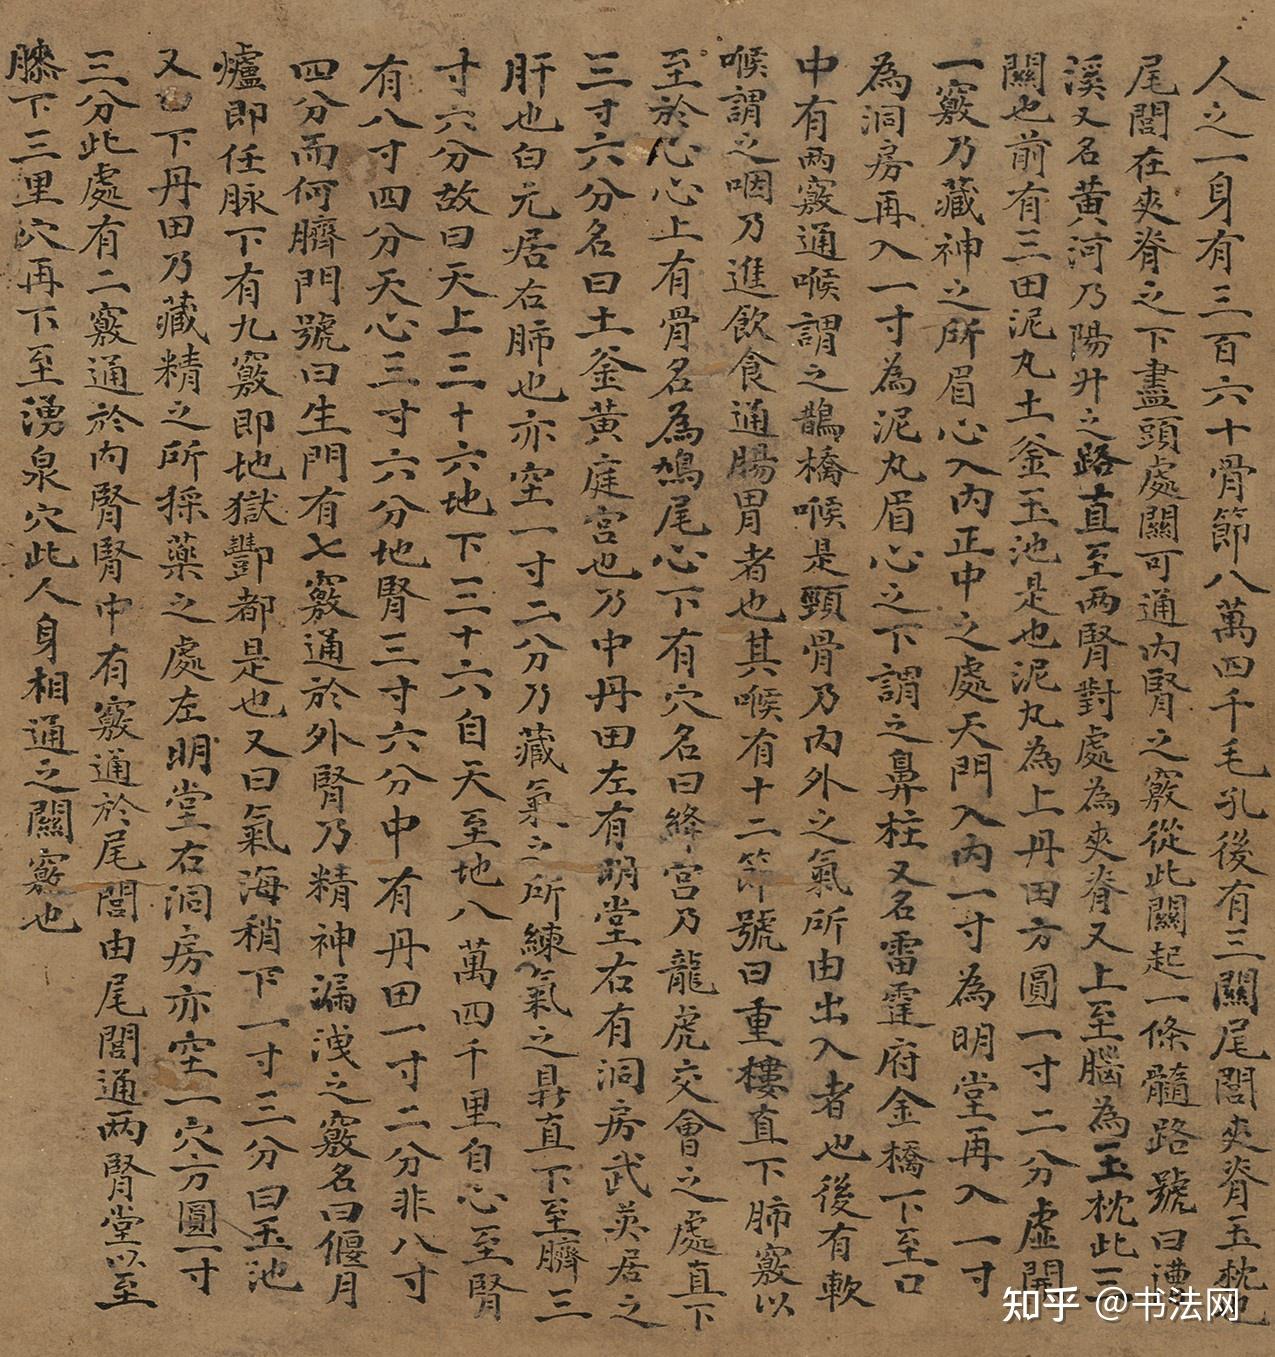 人之一身有三百六十骨節八萬四千毛孔後有三關尾閭夾脊玉枕也
尾閭在夾脊之下盡頭處關可通內腎之竅從此關起一條髓路號曰漕
溪又名黃河乃陽升之路直至兩腎對處為夾脊又上至腦為玉枕此三
關也前有三田泥丸土釜玉池是也泥丸為上丹田方圓一寸二分虛開
一竅乃藏神之所眉心入內正中之處天門入內一寸為明堂再入一寸
為洞房再入一寸為泥丸眉心之下謂之鼻柱又名雷霆府金橋下至口
中有兩竅通喉謂之鵲橋喉是頸骨乃內外之氣所由出入者也後有軟
喉謂之咽乃進飲食通腸胃者也其喉有十二節號曰重樓直下肺竅以
至於心心上有骨名為鳩尾心下有穴名曰絳宮乃龍虎交會之處直下
三寸六分名曰土釜黃庭宮也乃中丹田左有明堂右有洞房武英居之
肝也白元居右肺也亦空一寸二分乃藏氣之所練氣之鼎直下至臍三
寸六分故曰天上三十六地下三十六自天至地八萬四千里自心至腎
有八寸四分天心三寸六分地腎三寸六分中有丹田一寸二分非八寸
四分而何臍門號曰生門有七竅通於外腎乃精神漏洩之竅名曰偃月
爐即任脉下有九竅即地獄酆都是也又曰氣海稍下一寸三分曰玉池
又曰下丹田乃藏精之所採藥之處左明堂右洞房亦空一穴方圓一寸
三分此處有二竅通於內腎腎中有竅通於尾閭由尾閭通兩腎堂以至
膝下三里穴再下至湧泉穴此人身相通之關竅也
知乎 @书法网